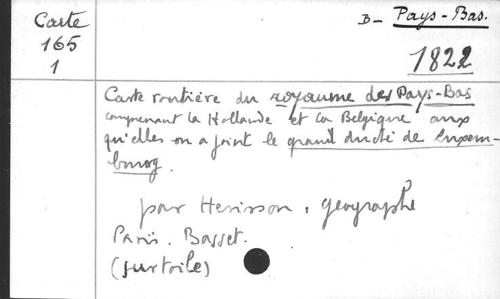 Carte
165
1
B- Pays-Bas.
1822
Carte routière du royaume des Pays-Bas
comprenant la Hollande et la Belgique aux
qu'elles on a joint le grand duché de Luxem-
bourg.
par Herisson, géographe
Paris. Basset.
(sur toile)